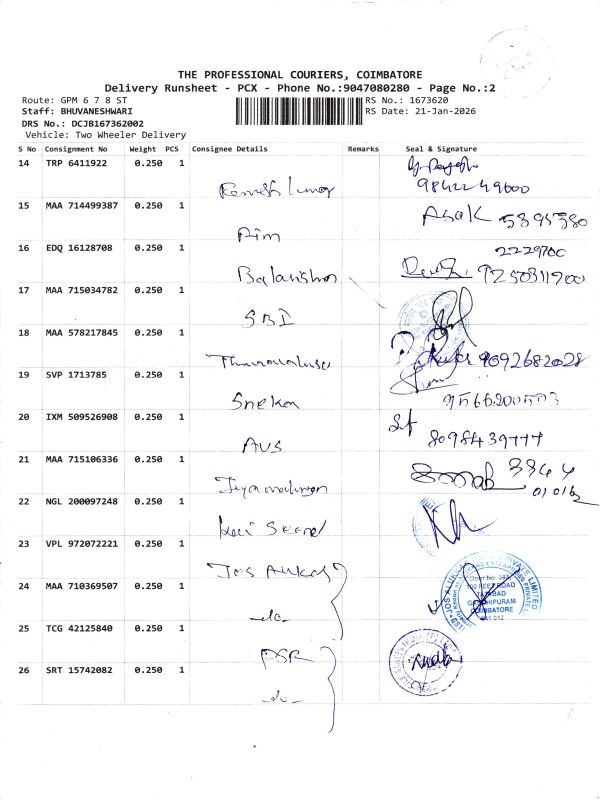 THE PROFESSIONAL COURIERS, COIMBATORE
Delivery Runsheet - PCX - Phone No.:9047080280 - Page No.:2
Route: GPM 6 7 8 ST
RS No.: 1673620
Staff: BHUVANESHWARI
RS Date: 21-Jan-2026
DRS No.: DCJB167362002
Vehicle: Two Wheeler Delivery
S No Consignment No Weight PCS Consignee Details Remarks Seal & Signature
14 TRP 6411922 0.250 1
9842249600
15 MAA 714499387 0.250 1
Asak 5395380
Aim
16 EDQ 16128708 0.250 1
2229700
9250311900
17 MAA 715034782 0.250 1
SBI
18 MAA 578217845 0.250 1
9092682028
19 SVP 1713785 0.250 1
Sneka
20 IXM 509526908 0.250 1
AVS
8098439777
21 MAA 715106336 0.250 1
3344
22 NGL 200097248 0.250 1
23 VPL 972072221 0.250 1
Jos Alukas
PRIVATE LIMITED
24 MAA 710369507 0.250 1
100 FEET ROAD
TATABAD
GANDHIPURAM
COIMBATORE
641 012
-do-
25 TCG 42125840 0.250 1
PSR
26 SRT 15742082 0.250 1
-do-